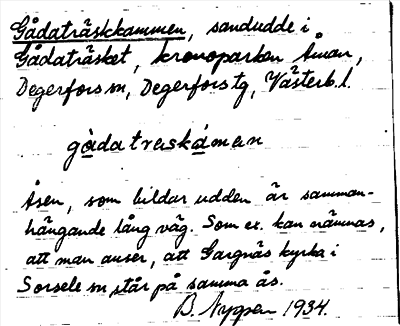 Gådaträskkammen, sandudde i
Gådaträsket, kronoparken Åman,
Degerfors sn, Degerfors tg, Västerb. l.
gàdatraskámen
Åsen, som bildar udden är samman-
hängande lång väg. Som ex. kan nämnas,
att man anser, att Gargnäs kyrka i
Sorsele sn står på samma ås.
B. 1934.